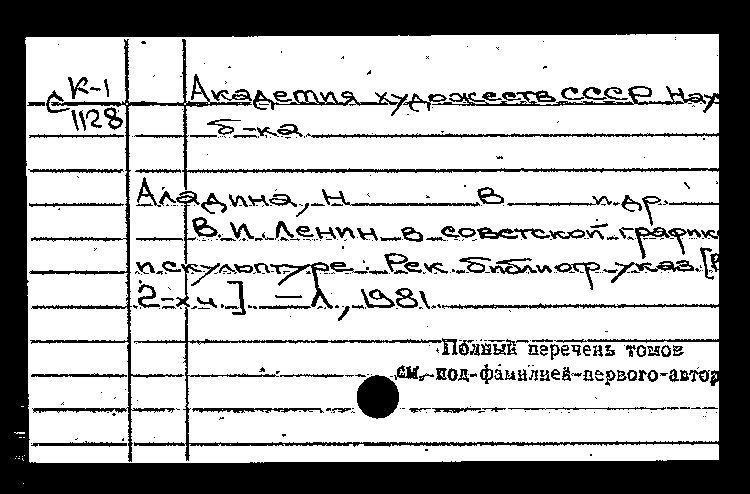 С К-1
1128
Академия художеств СССР Нау
б-ка
Аладина, Н В и др.
В. И. Ленин в советской график
и скульптуре: Рек. библиогр. указ. [В
2-х ч.] — Л., 1981
Полный перечень томов
см. под фамилией первого автор